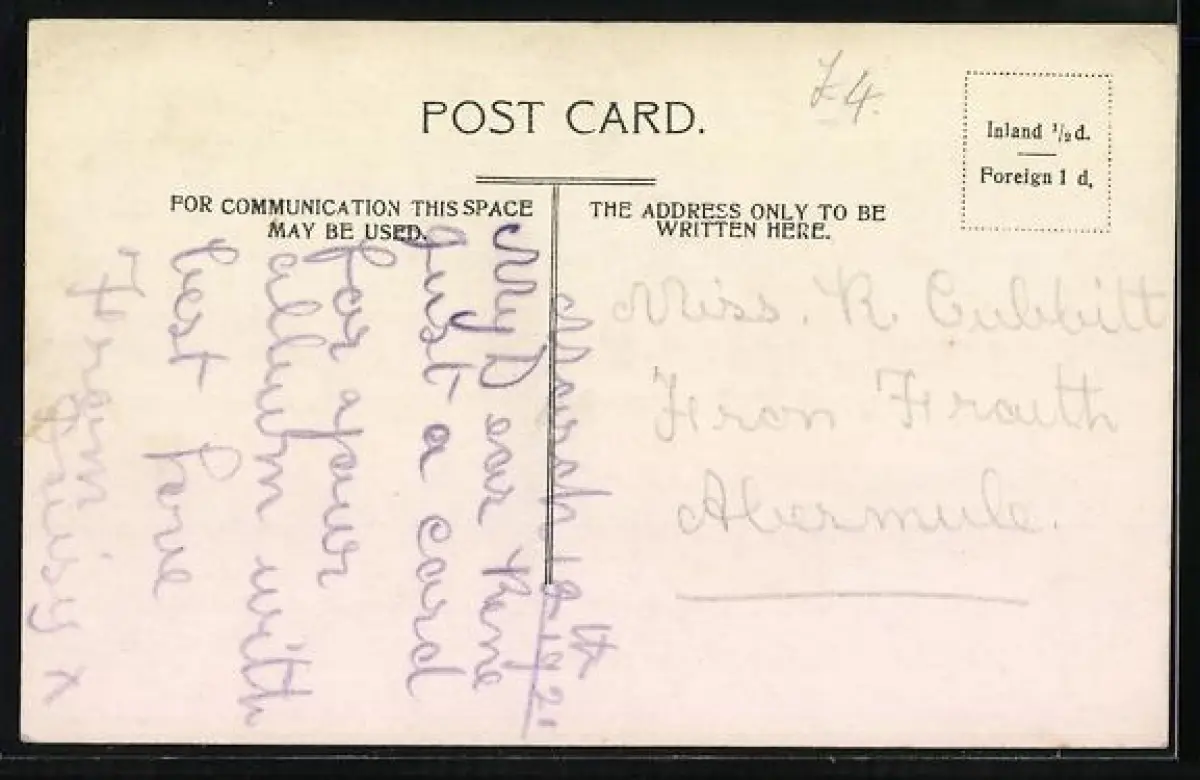 POST CARD.
£4.
Inland 1/2d.
Foreign 1 d.
FOR COMMUNICATION THIS SPACE
MAY BE USED.
THE ADDRESS ONLY TO BE
WRITTEN HERE.
March 12th 1921
My Dear Rene
Just a card
for your
allbum with
best love
From
x
Miss. R. Cubbitt
Fron Fraith
Abermule.